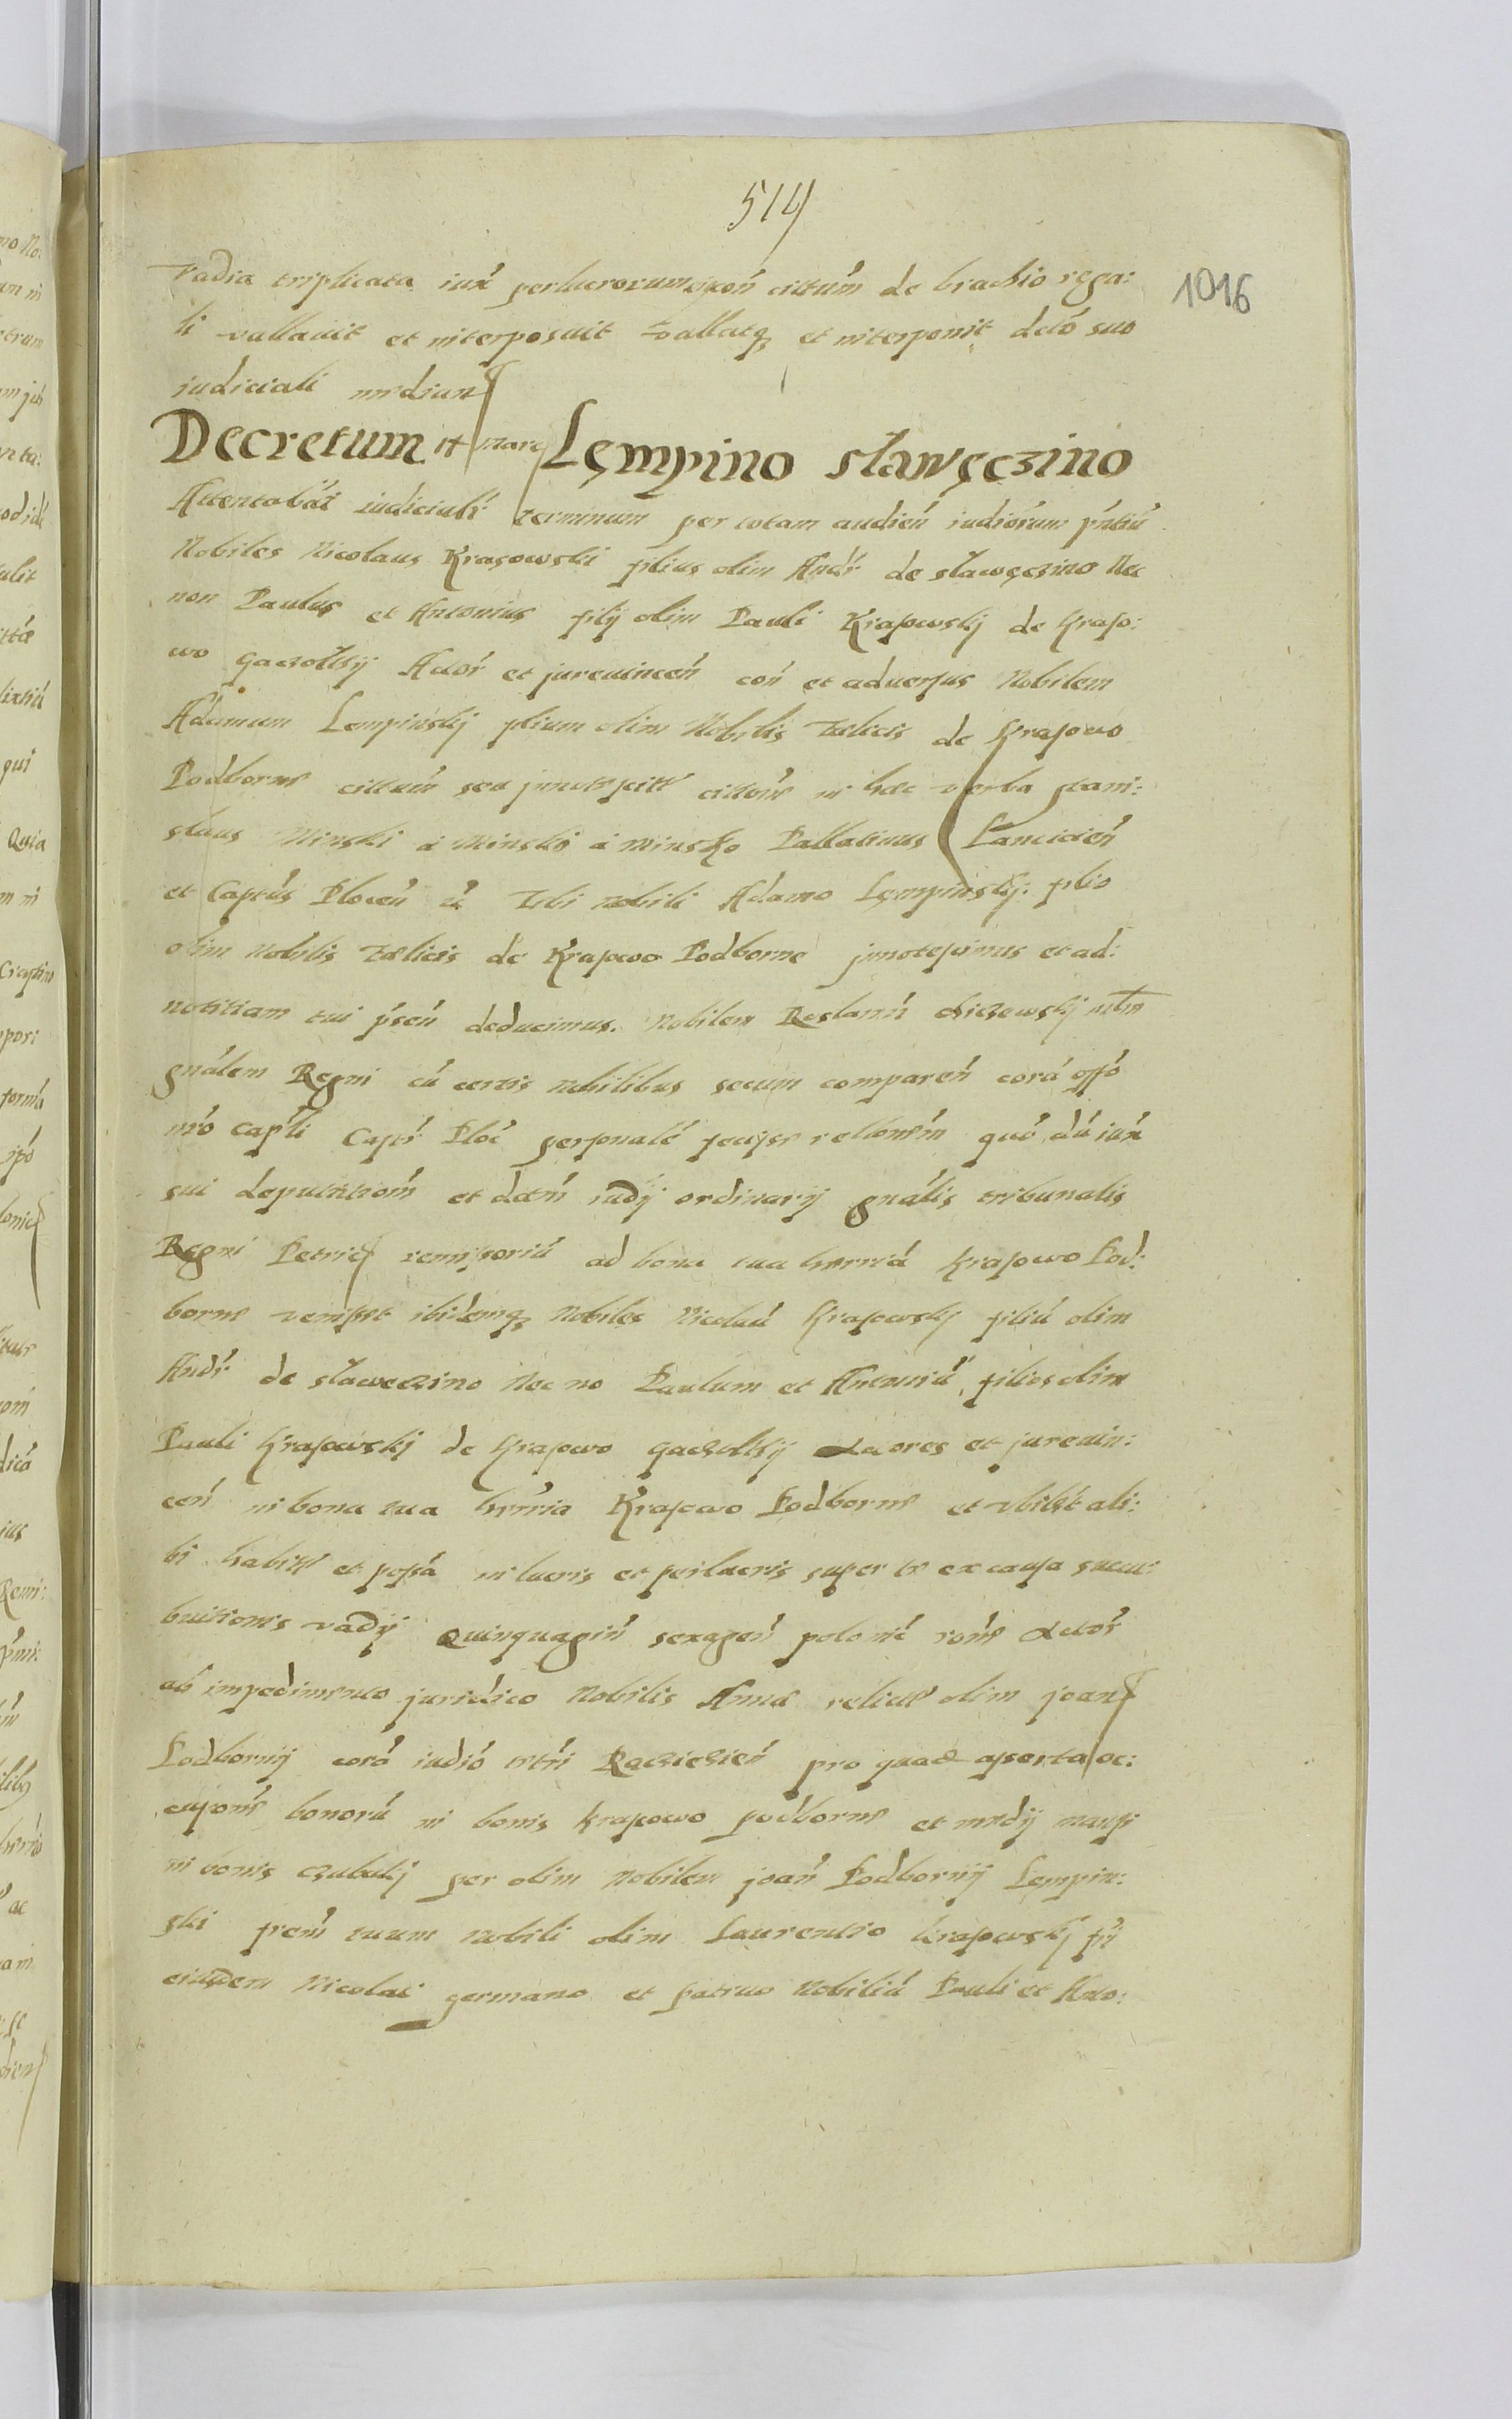 514
1016
vadia triplicata iux̃ perlucrorum cittuḿ de brachio rega:
li vallauit et interposuit vallatq; et interponit dctó suo
iudiciali median
Decretum it Lęmpino sławęczino
Attentabat iudicialr̃ terminum per totam audień iudiórum
Nobiles Nicolaus Krasowski filius olim Andr̃ de sławęczino Nec
non Paulus et Antonius filij olim Pauli Krasowskj de Kraso:
wo gaczołkij Actór et jureuinceń coń et aduersus Nobilem
Adamum Lempinskj filium olim Nobilis Felicis de Krasowo
Podborne cittuḿ seu cittońe in haec verba stani:
slaus Minski a Minsko Pallatinus Lancicień
et Captús Ploceń Tibi nobili Adamo Lęmpinskj: filio
olim Nobilis Felicis de Krasowo Podborne jnnotescimus et ad:
notitiam tui pŕseń deducimus. Nobilem Roslanú chiczewskj
gnálem Regni cú certis nobilibus secum compareń corá offó
nró Capĺi Captr̃ Ploć personalé fecisse quó dú iux
sui deputatioḿ et iudij ordinarij gnális tribunalis
Regni Petric remissoriú ad bona tua Krasowo Pod:
borne venisset ibidemq; Nobiles Nicolaú Krasowskj filiú olim
Andr̃ de sławeczino Nec no Paulum et Antoniú filios olim
Pauli Krasowskj de Krasowo gaczolkij Actores et jureuin:
ceń in bona tua Krasowo Podborne et vbilit ali:
bi habitt et possá in lucris et perlucris super te ex causa succu:
buitionis vadij Quinquagiń sexageń polonić Actór
ab impedimento juridico Nobilis Annae relictae olim joan
Podbornij corá iudió Racziczień pro quad asserta oc:
cupońe bonorú in bonis Krasowo podborne et medij mansi
in bonis per olim Nobilem joań Podbornij Lempin:
ski tuum Nobili olim Laurentio Krasowskj
eiusdem Nicolai germano et patruo Nobiliú Pauli et Anto: